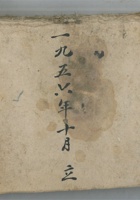 一九五六年十月 立